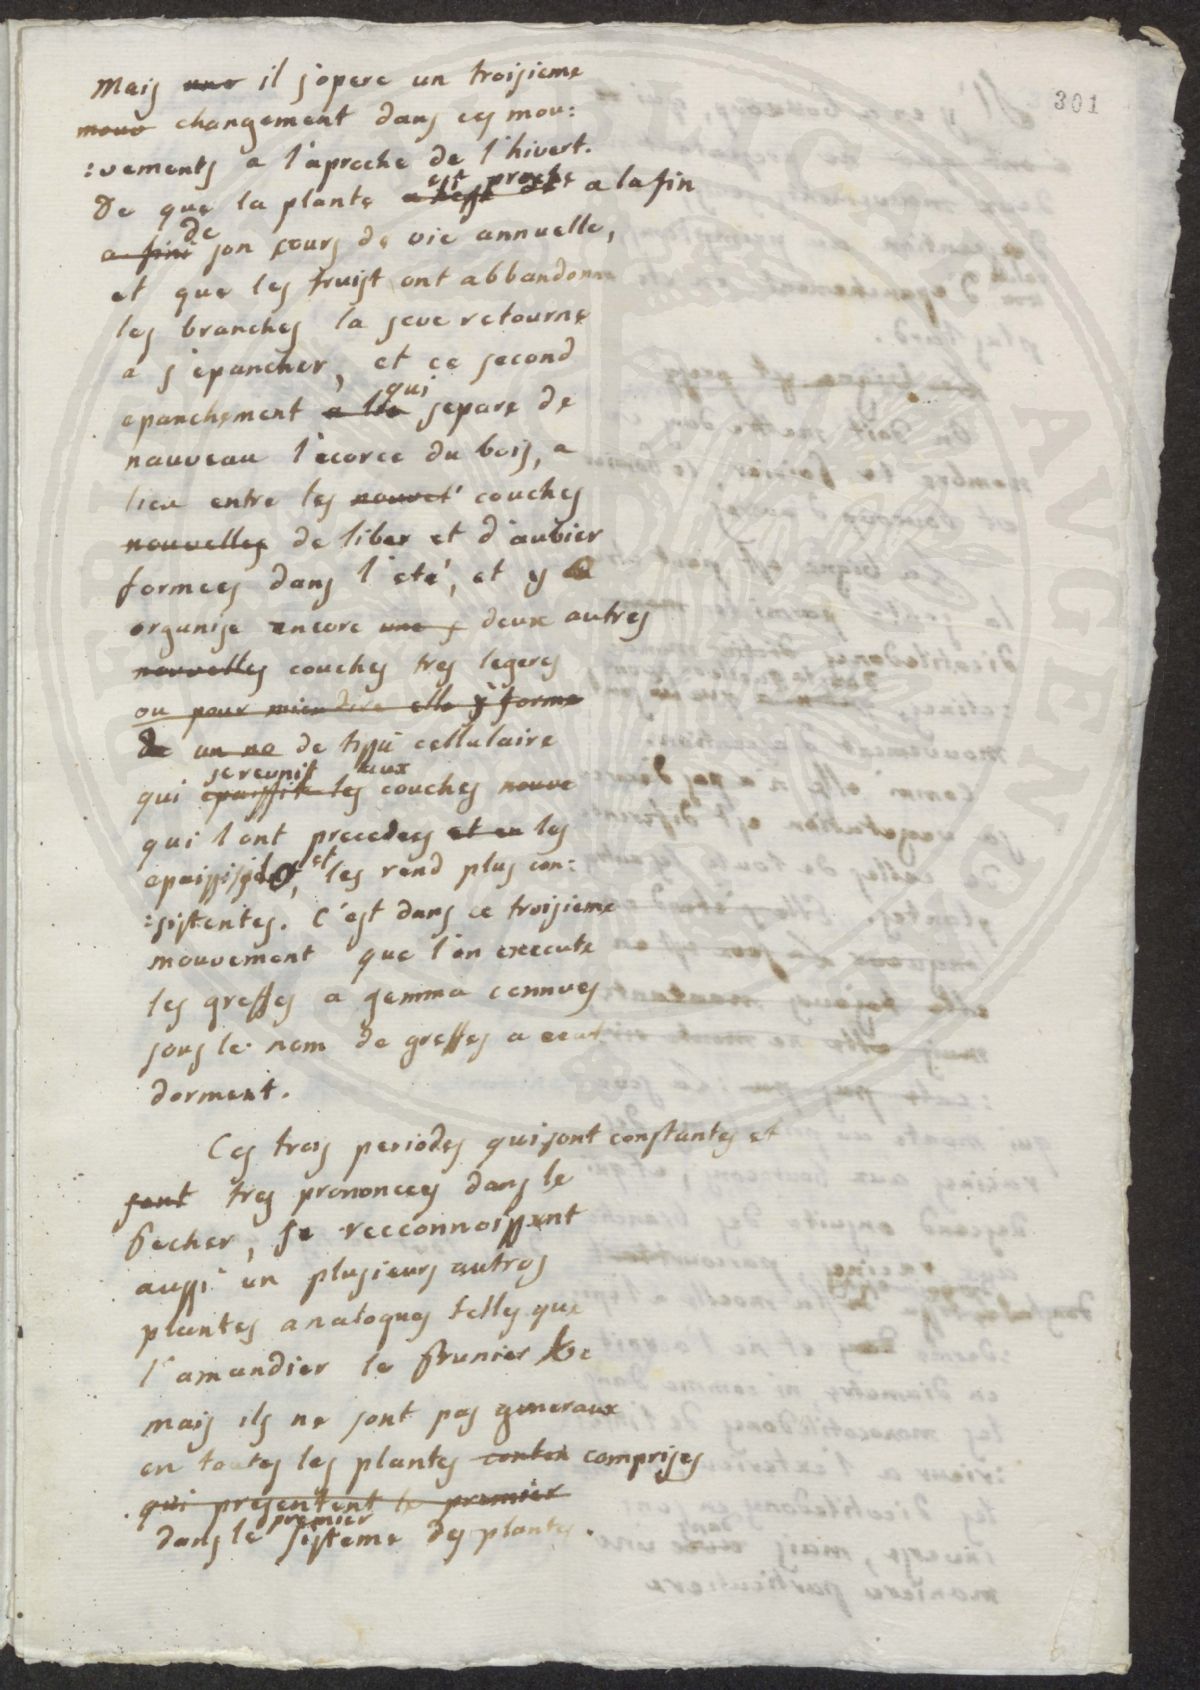 301
Mais une il s'opere un troisieme
mouv changement dans ces mou:
:vements a l'aproche de l'hivert.
De que la plante est proche a la fin
a fini de son cours de vie annuelle,
et que les fruist ont abbandonne
les branches la seve retourne
a s'epancher, et ce second
epanchement qui separe de
nauveau l'ecorce du bois, a
lieu entre les nouvel couches
nouvelles de liber et d'aubier
formees dans l'eté, et y
organise encore une deux autres
nouvelles couches tres legeres
ou pour mieu dire elle y forme
de un ne de tissu cellulaire
qui se reunit aux couches nouve
qui l'ont precedees et en les
epaississant, et les rend plus con:
:sistentes. C'est dans ce troisieme
mouvement que l'on execute
les greffes a gemma connues
sous le nom de greffes a oeul
dorment.
Ces trois periodes qui sont constantes et
sont tres prononcees dans le
Pecher, se recconnoissent
aussi en plusieurs autres
plantes analogues telles que
l'amandier le Prunier &c
mais ils ne sont pas generaux
en toutes les plantes comprises
qui presentent le premier
dans le premier sisteme des plantes.